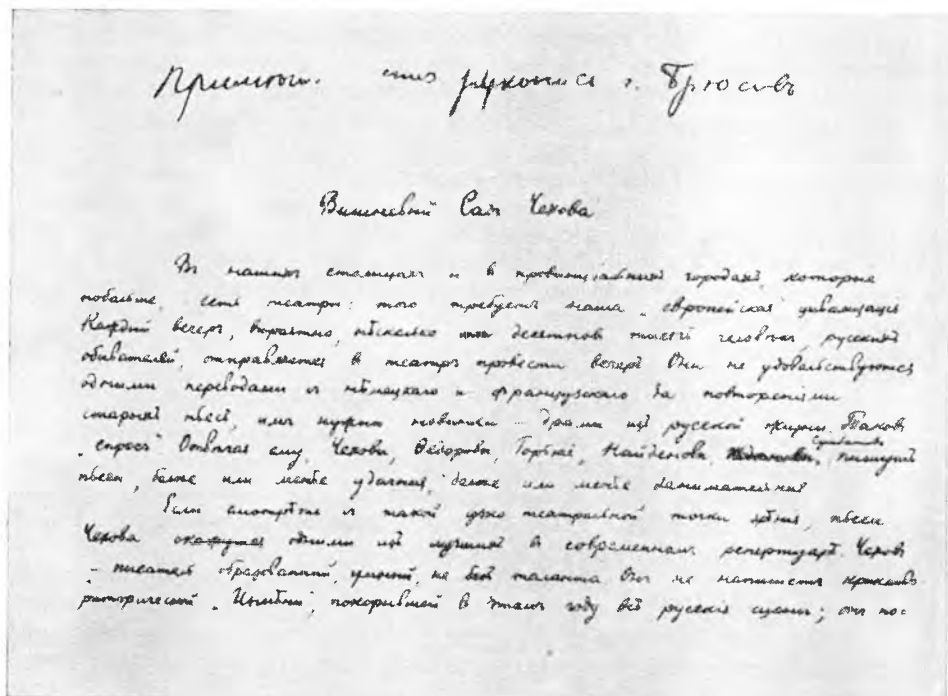 рукопись г. Брюсовъ
Вишневый Садъ Чехова
Въ нашихъ столицахъ и в провинціальныхъ городахъ, которые
побольше, есть театры: того требуетъ наша „европейская" цивилизація
Каждый вечеръ, вѣроятно, нѣсколько десятковъ тысячъ человѣкъ, русскихъ
обывателей, отправляется в театръ провести вечеръ Они не удовольствуются
одними переводами съ нѣмецкаго и французскаго да повтореніями
старыхъ пьесъ, имъ нужны новинки — драмы изъ русской жизни. Таковъ
„спросъ" Отвѣчая ему, Чеховы, Ѳедоровы, Горькіе, Найденовы, пишутъ
пьесы, болѣе или менѣе удачныя, болѣе или менѣе занимательныя
Если смотрѣть съ такой узко театральной точки зрѣнія, пьесы
Чехова окажутся одними изъ лучшихъ в современномъ репертуарѣ. Чеховъ
— писатель образованный, умный, не безъ таланта Онъ не напишетъ
риторической „Измѣны", покорившей в этомъ году всѣ русскія сцены; онъ по=